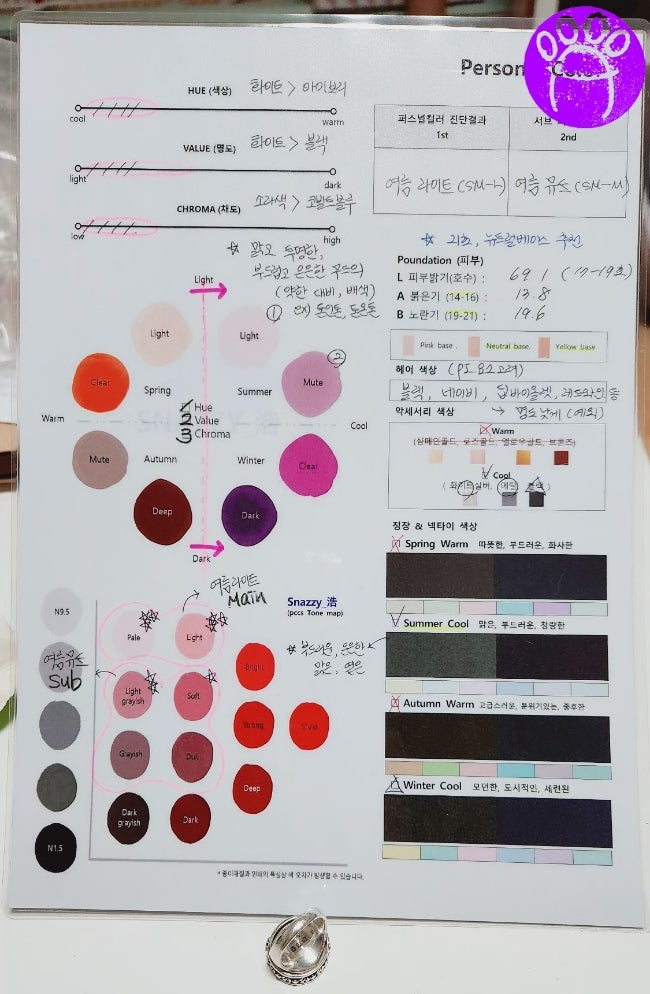 Person
HUE (색상) 화이트 > 아이보리
cool
warm
VALUE (명도) 화이트 > 블랙
light
dark
CHROMA (채도) 소라색 > 코발트블루
low
high
퍼스널컬러 진단결과
1st
서브
2nd
여름 라이트 (SM-L)
여름 뮤트 (SM-M)
맑고 투명한,
부드럽고 은은한 무드의
(약한 대비, 배색)
① ex) 톤인톤, 톤온톤
뉴트럴베이스 추천
Poundation (피부)
L 피부밝기(호수) : 69.1 (17-19호)
A 붉은기 (14-16) : 13.8
B 노란기 (19-21) : 19.6
Pink base .
Neutral base.
Yellow base
헤어 색상
블랙, 네이비, 딥바이올렛, 레드와인 등
악세서리 색상
Warm
(샴페인골드, 로즈골드, 옐로우골드, 브론즈)
Cool
( 화이트실버, 메탈, 블랙 )
Light
Light
Light
Clear
Spring
Summer
Mute
②
Warm
1 Hue
2 Value
3 Chroma
Cool
Mute
Autumn
Winter
Clear
Deep
Dark
Dark
정장 & 넥타이 색상
Spring Warm 따뜻한, 부드러운, 화사한
Summer Cool 맑은, 부드러운, 청량한
Autumn Warm 고급스러운, 분위기있는, 중후한
Winter Cool 모던한, 도시적인, 세련된
여름라이트
Main
Snazzy_浩
(pccs Tone map)
부드러운, 은은한
맑은, 옅은
여름뮤트
Sub
N9.5
N1.5
Pale
Light
Bright
Light grayish
Soft
Strong
Vivid
Grayish
Dull
Deep
Dark grayish
Dark
* 종이재질과 인쇄의 특성상 색 오차가 발생할 수 있습니다.